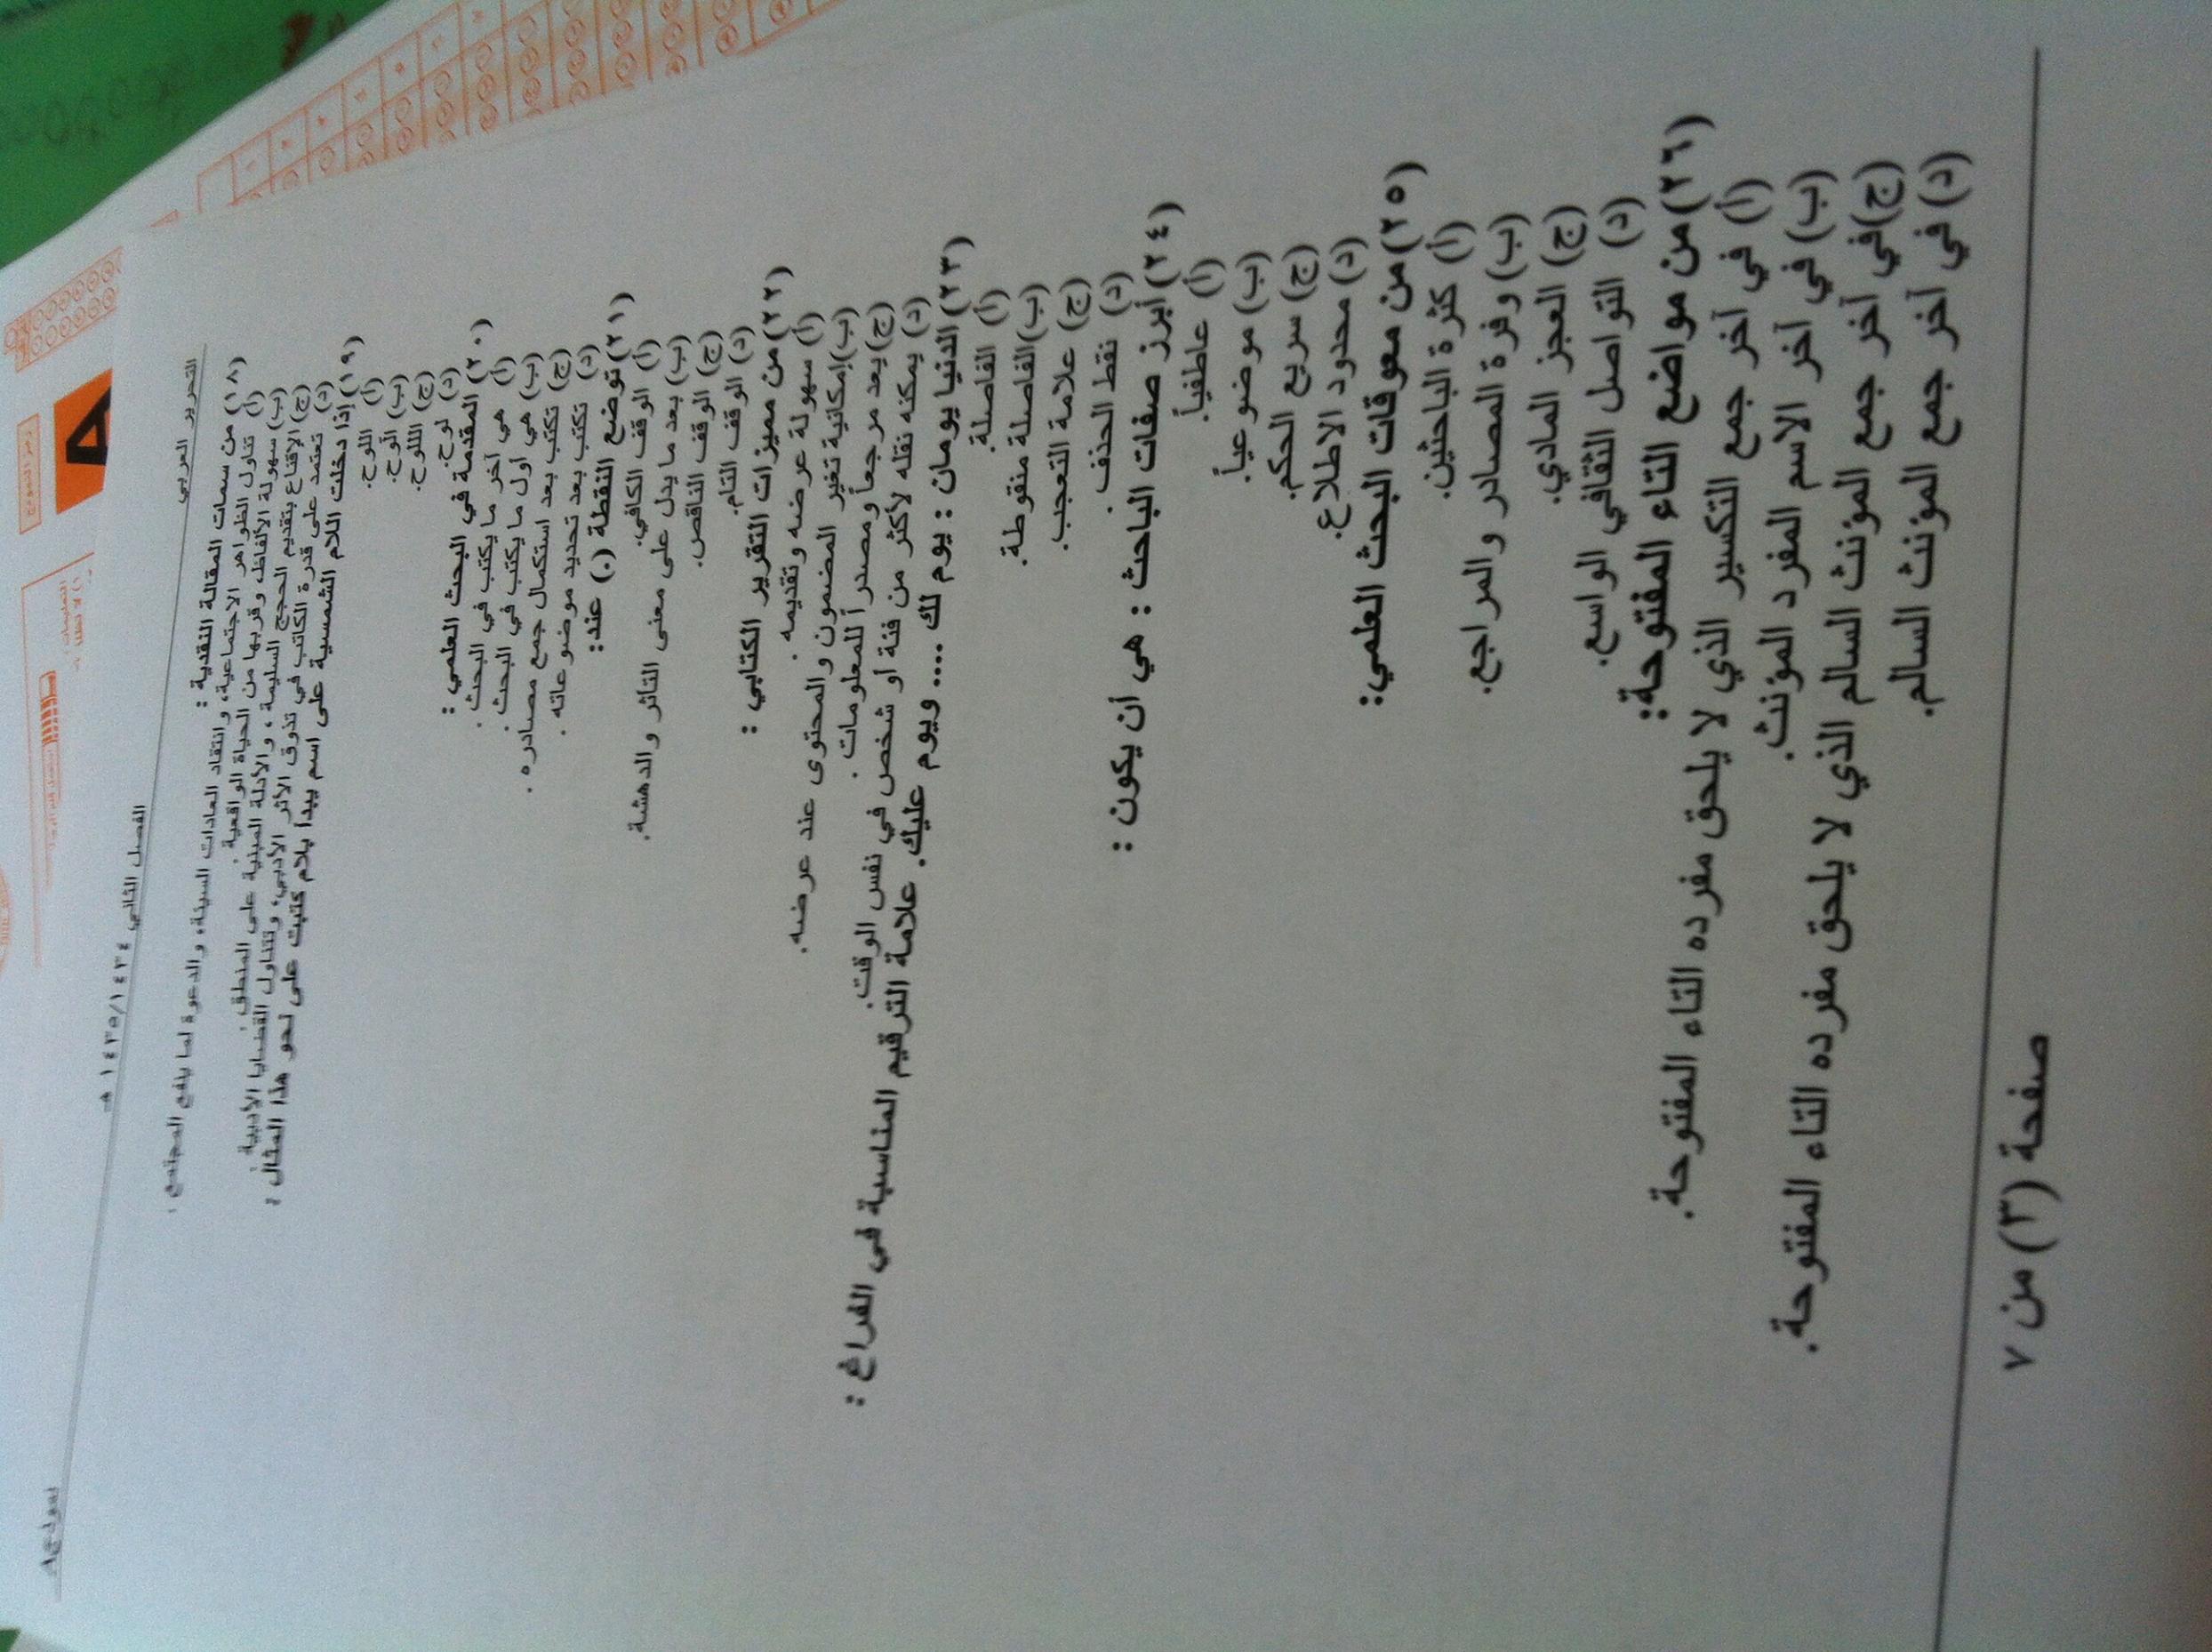 نموذج A
الفصل الثاني ١٤٣٥/١٤٣٤ هـ
التحرير العربي
رمز النموذج
A
١٨) من سمات المقالة النقدية :
(أ) تناول الظواهر الاجتماعية، وانتقاد العادات السيئة، والدعوة لما ينفع المجتمع .
(ب) سهولة الألفاظ، وقربها من الحياة الواقعية .
(ج) الإقناع بتقديم الحجج السليمة ، والأدلة المبنية على المنطق .
(د) تعتمد على قدرة الكاتب في تذوق الأثر الأدبي، وتتناول القضايا الأدبية .
١٩) إذا دخلت اللام الشمسية على اسم يبدأ بلام كتبت على نحو هذا المثال :
(أ) اللوح.
(ب) الوح.
(ج) اللوح.
(د) لوح.
٢٠) المقدمة في البحث العلمي :
(أ) هي آخر ما يكتب في البحث .
(ب) هي أول ما يكتب في البحث .
(ج) تكتب بعد استكمال جمع مصادره .
(د) تكتب بعد تحديد موضوعاته .
٢١) توضع النقطة (.) عند:
(أ) الوقف الكافي.
(ب) بعد ما يدل على معنى التأثر والدهشة.
(ج) الوقف الناقص.
(د) الوقف التام.
٢٢) من مميزات التقرير الكتابي :
(أ) سهولة عرضه وتقديمه .
(ب) إمكانية تغير المضمون والمحتوى عند عرضه.
(ج) يعد مرجعاً ومصدراً للمعلومات .
(د) يمكنه نقله لأكثر من فئة أو شخص في نفس الوقت.
٢٣) الدنيا يومان : يوم لك .... ويوم عليك. علامة الترقيم المناسبة في الفراغ :
(أ) الفاصلة.
(ب) الفاصلة منقوطة.
(ج) علامة التعجب.
(د) نقط الحذف .
٢٤) أبرز صفات الباحث : هي أن يكون :
(أ) عاطفياً.
(ب) موضوعياً.
(ج) سريع الحكم.
(د) محدود الاطلاع.
٢٥) من معوقات البحث العلمي:
(أ) كثرة الباحثين.
(ب) وفرة المصادر والمراجع.
(ج) العجز المادي.
(د) التواصل الثقافي الواسع.
٢٦) من مواضع التاء المفتوحة:
(أ) في آخر جمع التكسير الذي لا يلحق مفرده التاء المفتوحة.
(ب) في آخر الاسم المفرد المؤنث.
(ج) في آخر جمع المؤنث السالم الذي لا يلحق مفرده التاء المفتوحة.
(د) في آخر جمع المؤنث السالم.
صفحة (٣) من ٧